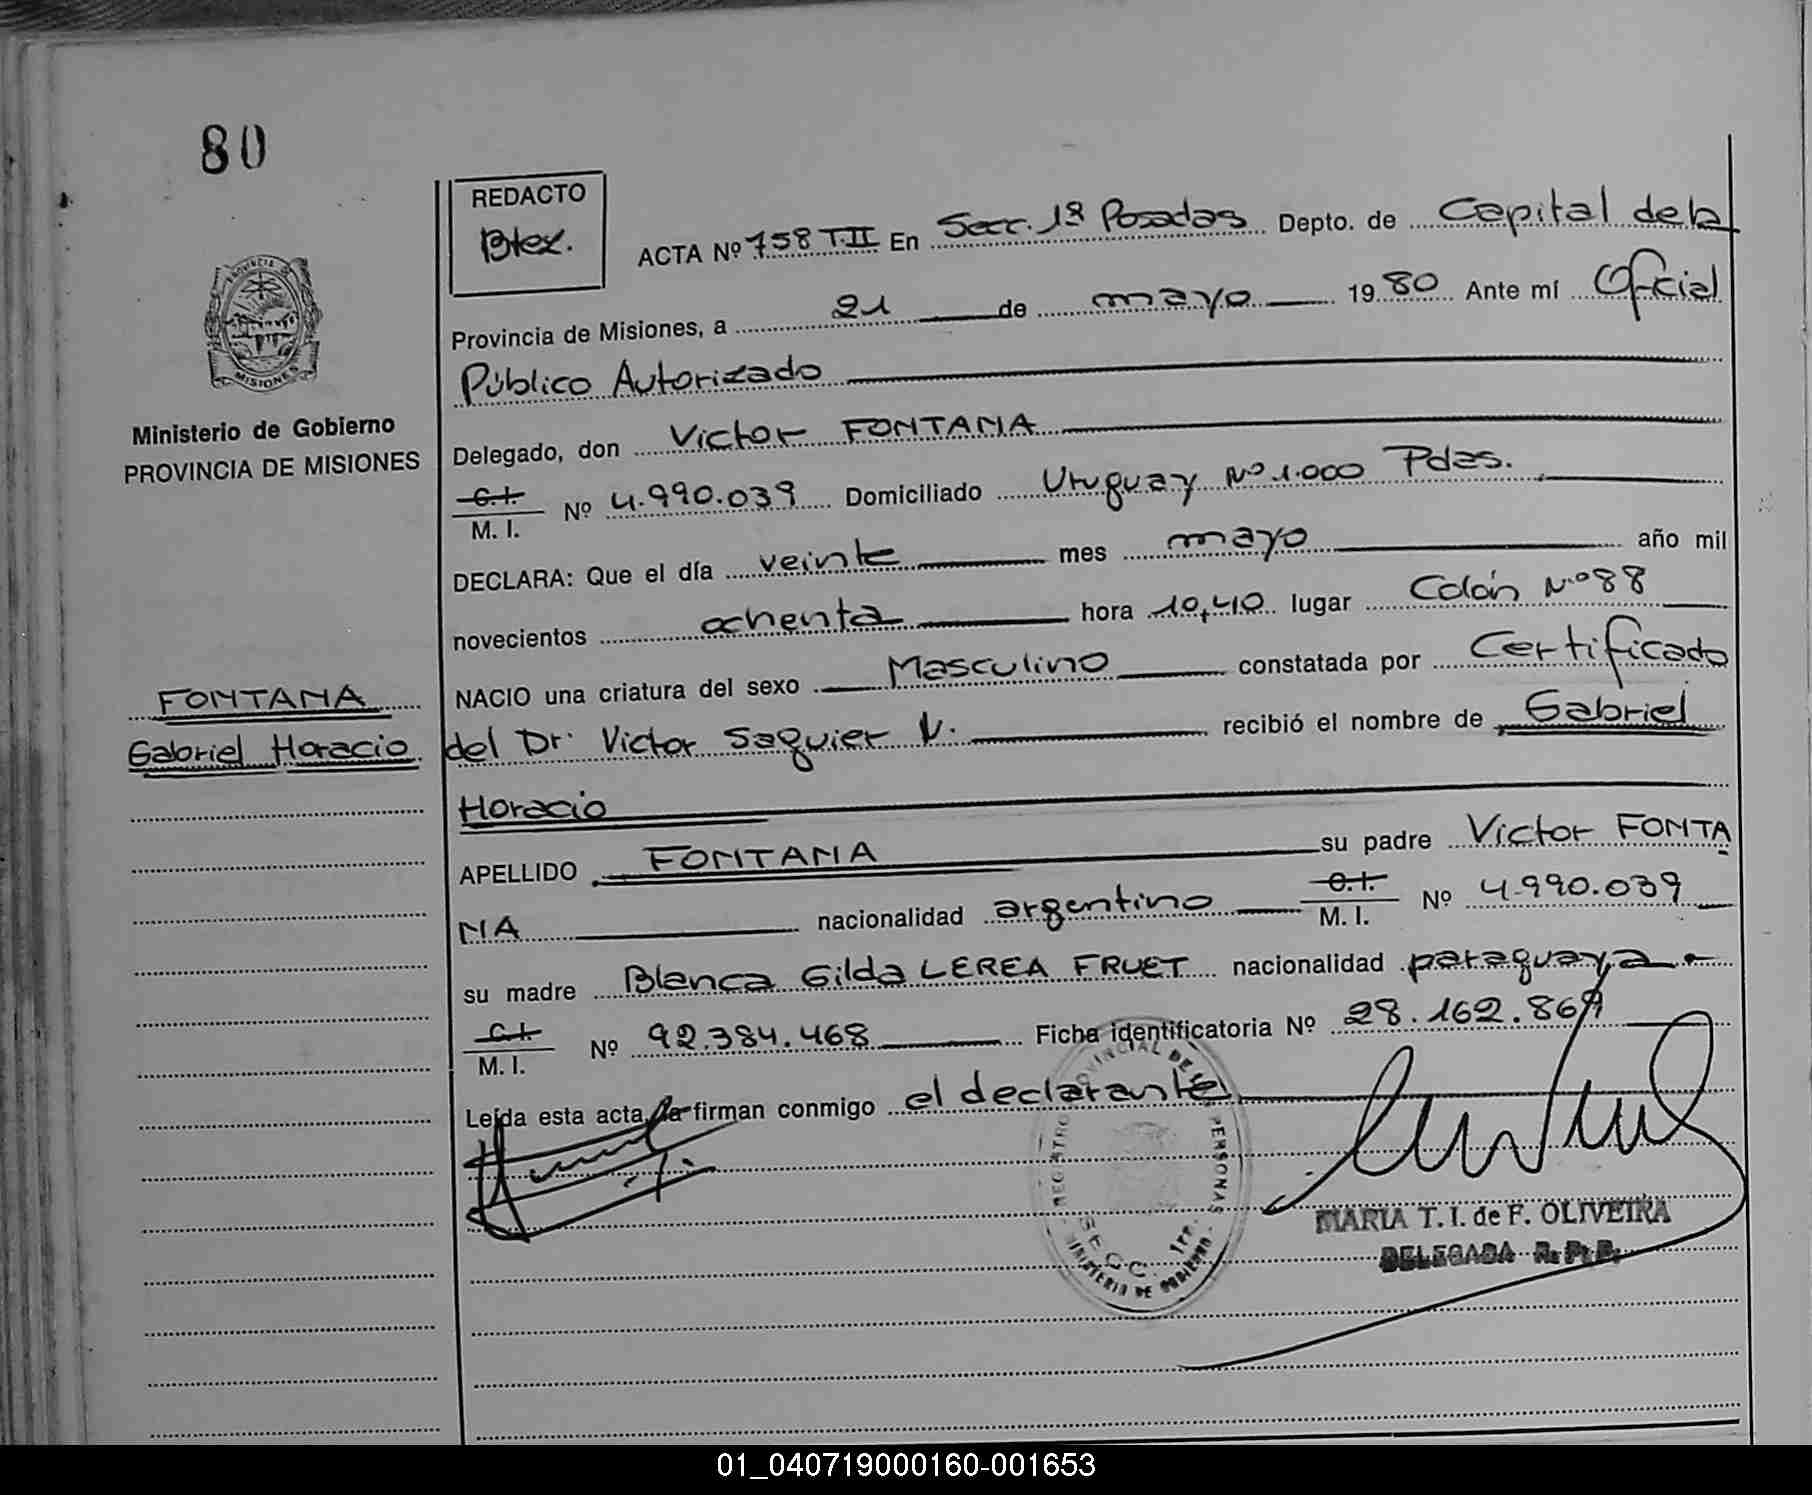 80
REDACTO
Btez.
ACTA Nº 758 T.II En Secc. 1ª Posadas Depto. de Capital de la
Provincia de Misiones, a 21 de mayo 1980 Ante mí Oficial
Público Autorizado
PROVINCIA DE
MISIONES
Ministerio de Gobierno
PROVINCIA DE MISIONES
Delegado, don Victor FONTANA
C.I.
M. I. Nº 4.990.039 Domiciliado Uruguay Nº 1.000 Pdas.
DECLARA: Que el día veinte mes mayo año mil
novecientos ochenta hora 10,40 lugar Colón Nº 88
NACIO una criatura del sexo Masculino constatada por Certificado
FONTANA
Gabriel Horacio
del Dr. Victor Saguier V. recibió el nombre de Gabriel
Horacio
APELLIDO FONTANA su padre Victor FONTA
NA nacionalidad argentino C.I.
M. I. Nº 4.990.039
su madre Blanca Gilda LEREA FRUET nacionalidad paraguaya
C.I.
M. I. Nº 92.384.468 Ficha identificatoria Nº 28.162.869
Leída esta acta la firman conmigo el declarante
REGISTRO PROVINCIAL DE LAS PERSONAS
SECC. 1ra.
MINISTERIO DE GOBIERNO
MARIA T. I. de F. OLIVEIRA
DELEGADA R. P. P.
01_040719000160-001653